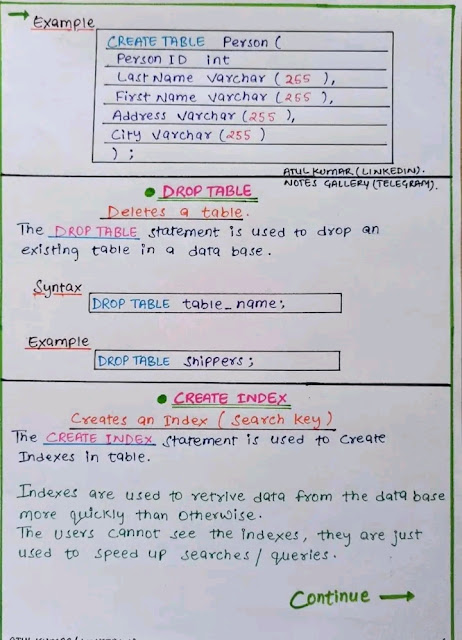 → Example
CREATE TABLE Person (
Person ID int
Last Name varchar (255),
First Name varchar (255),
Address varchar (255),
City varchar (255)
);
ATUL KUMAR (LINKEDIN).
NOTES GALLERY (TELEGRAM).
• DROP TABLE
Deletes a table.
The DROP TABLE statement is used to drop an
existing table in a data base.
Syntax
DROP TABLE table_name;
Example
DROP TABLE Shippers;
• CREATE INDEX
Creates an Index (Search key)
The CREATE INDEX statement is used to create
Indexes in table.
Indexes are used to retrive data from the data base
more quickly than otherwise.
The users cannot see the indexes, they are just
used to speed up searches / queries.
Continue →